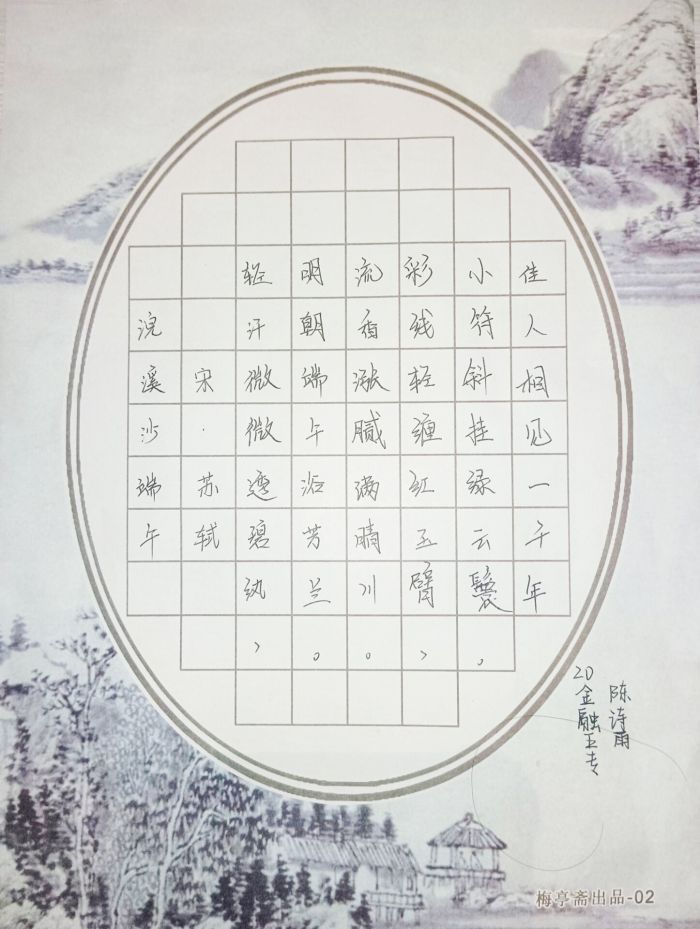 浣溪沙端午
宋·苏轼
轻汗微微透碧纨,
明朝端午浴芳兰。
流香涨腻满晴川。
彩线轻缠红玉臂,
小符斜挂绿云鬟。
佳人相见一千年
20金融五专
陈诗雨
梅亭斋出品-02